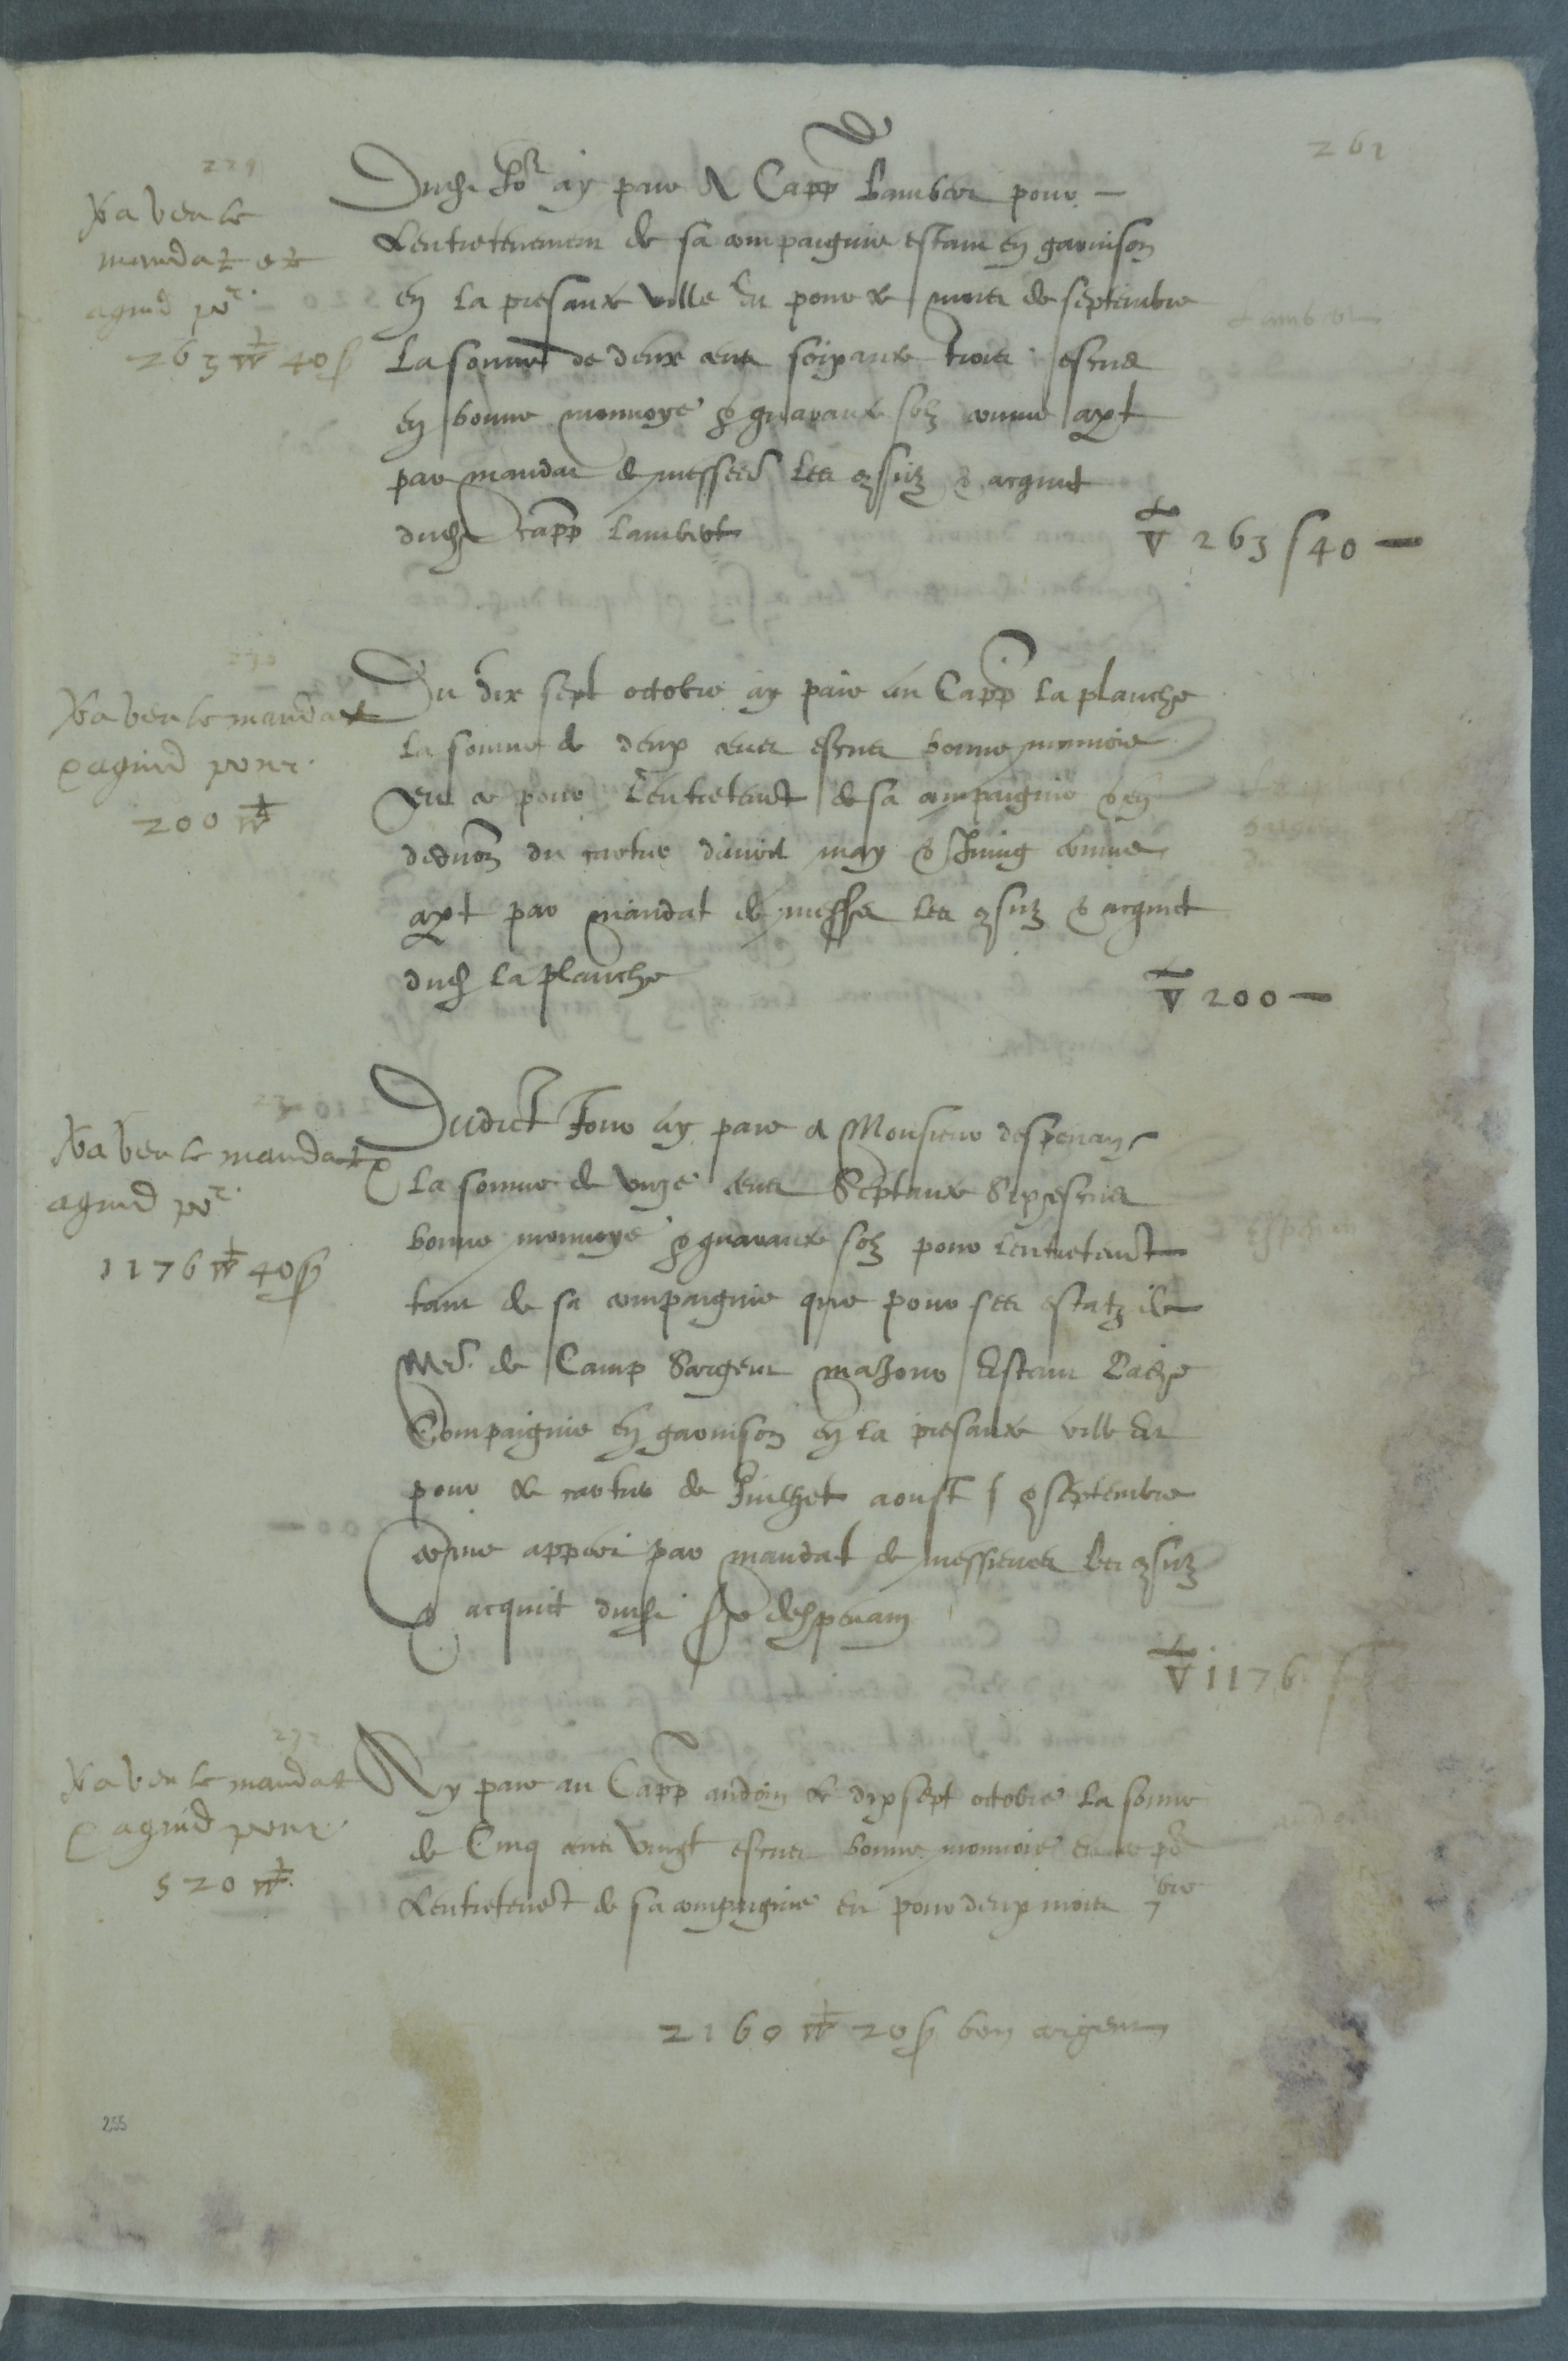 261
229
Va veu le
mandat et
aquid por
263 40 s
Dudit Jor ay paie a Capp Lambert pour
Lentretenement de sa compaignie estant en garnison
en la presante ville Et pour le mois de septembre
La somme de deux cens soixante trois escus
en bonne monnoye & quarante solz comme apt
par mandat de messers les consulz & acquit
dudit capp Lambert
V 263 s 40 —
Lambert
230
Va veu le mandat
& aquid pour
200
Du dix sept octobre ay paie au Capp la planche
la somme de deux cens escus bonne monnoie
Et ce pour lentretent de sa compaignie & en
deduon du cartier davril may & Juing comme
apt par mandat de messrs les consulz & acquit
dudit la planche
V 200 —
Va veu le mandat &
aquid por
1176 40 s
Dudict Jour ay paie a Monsieur despenan
la somme de unze cens septante six escus
bonne monnoye & quarante solz pour lentretent
tant de sa compaignie que pour ses estatz de
Me de Camp Sargent majour Estant lade
Compaignie en garnison en la presante ville Et
pour le cartier de Juilhet aoust & septembre
comme appert par mandat de messieurs les consulz
& acquit dudit sr despenan
V 1176 s
232
Va veu le mandat
& aquid pour
520
Ay paie au Capp audoin le dix sept octobre la somme
de Cinq cens vingt escus bonne monnoie Et ce por
Lentretenet de sa compaignie Et pour deux mois 7bre
2160 20 s bon argent
255